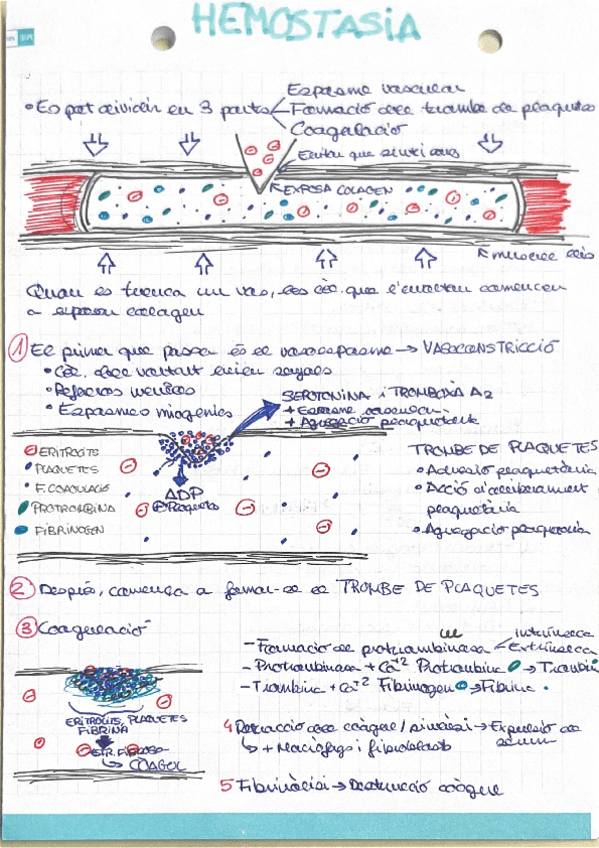 HEMOSTASIA
• Es pot dividir en 3 parts
Espasme vascular
Formació del trombe de plaquetes
Coagulació
EXPOSA COLAGEN
Quan es trenca un vas, les cèl. que l'envolten comencen
a exposar colagen
① El primer que passa és el vasoespasme → VASOCONSTRICCIÓ
• Cèl. del voltant
• Reflexos
• Espasmes miogènics
SEROTONINA i TROMBOXÀ A2
+ Espasme vascular
+ Agregació plaquetària
ERITRÒCITS
PLAQUETES
F. COAGULACIÓ
PROTROMBINA
FIBRINOGEN
ADP
⊕ Plaquetes
TROMBE DE PLAQUETES
• Adhesió plaquetària
• Acció d'alliberament
plaquetària
• Agregació plaquetària
② Després, comença a formar-se el TROMBE DE PLAQUETES
③ Coagulació
- Formació de protrombinasa
intrínseca
Extrínseca
- Protrombinasa + Ca+2 Protrombina → Trombina
- Trombina + Ca+2 Fibrinogen → Fibrina
ERITRÒCITS, PLAQUETES
FIBRINA
COÀGUL
4 Retracció del coàgul / sinèresi → Expulsió de
sèrum
↳ + Macròfags i fibroblasts
5 Fibrinòlisi → Destrucció coàgul